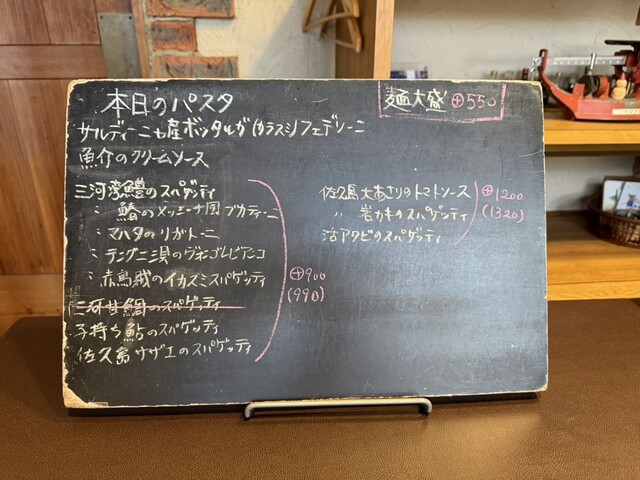 本日のパスタ
麺大盛 ⊕550
サルディーニャ産ボッタルガ(カラスミ)フェデリーニ
魚介のクリームソース
三河湾鱧のスパゲッティ
〃 鰆のメッシーナ風ブカティーニ
〃 マハタのリガトーニ
〃 テングニシ貝のヴォンゴレビアンコ
〃 赤烏賊のイカスミスパゲッティ
三河甘鯛のスパゲッティ
子持ち鮎のスパゲッティ
佐久島サザエのスパゲッティ
⊕900
(990)
佐久島大あさりのトマトソース
〃 岩カキのスパゲッティ
活アワビのスパゲッティ
⊕1200
(1320)